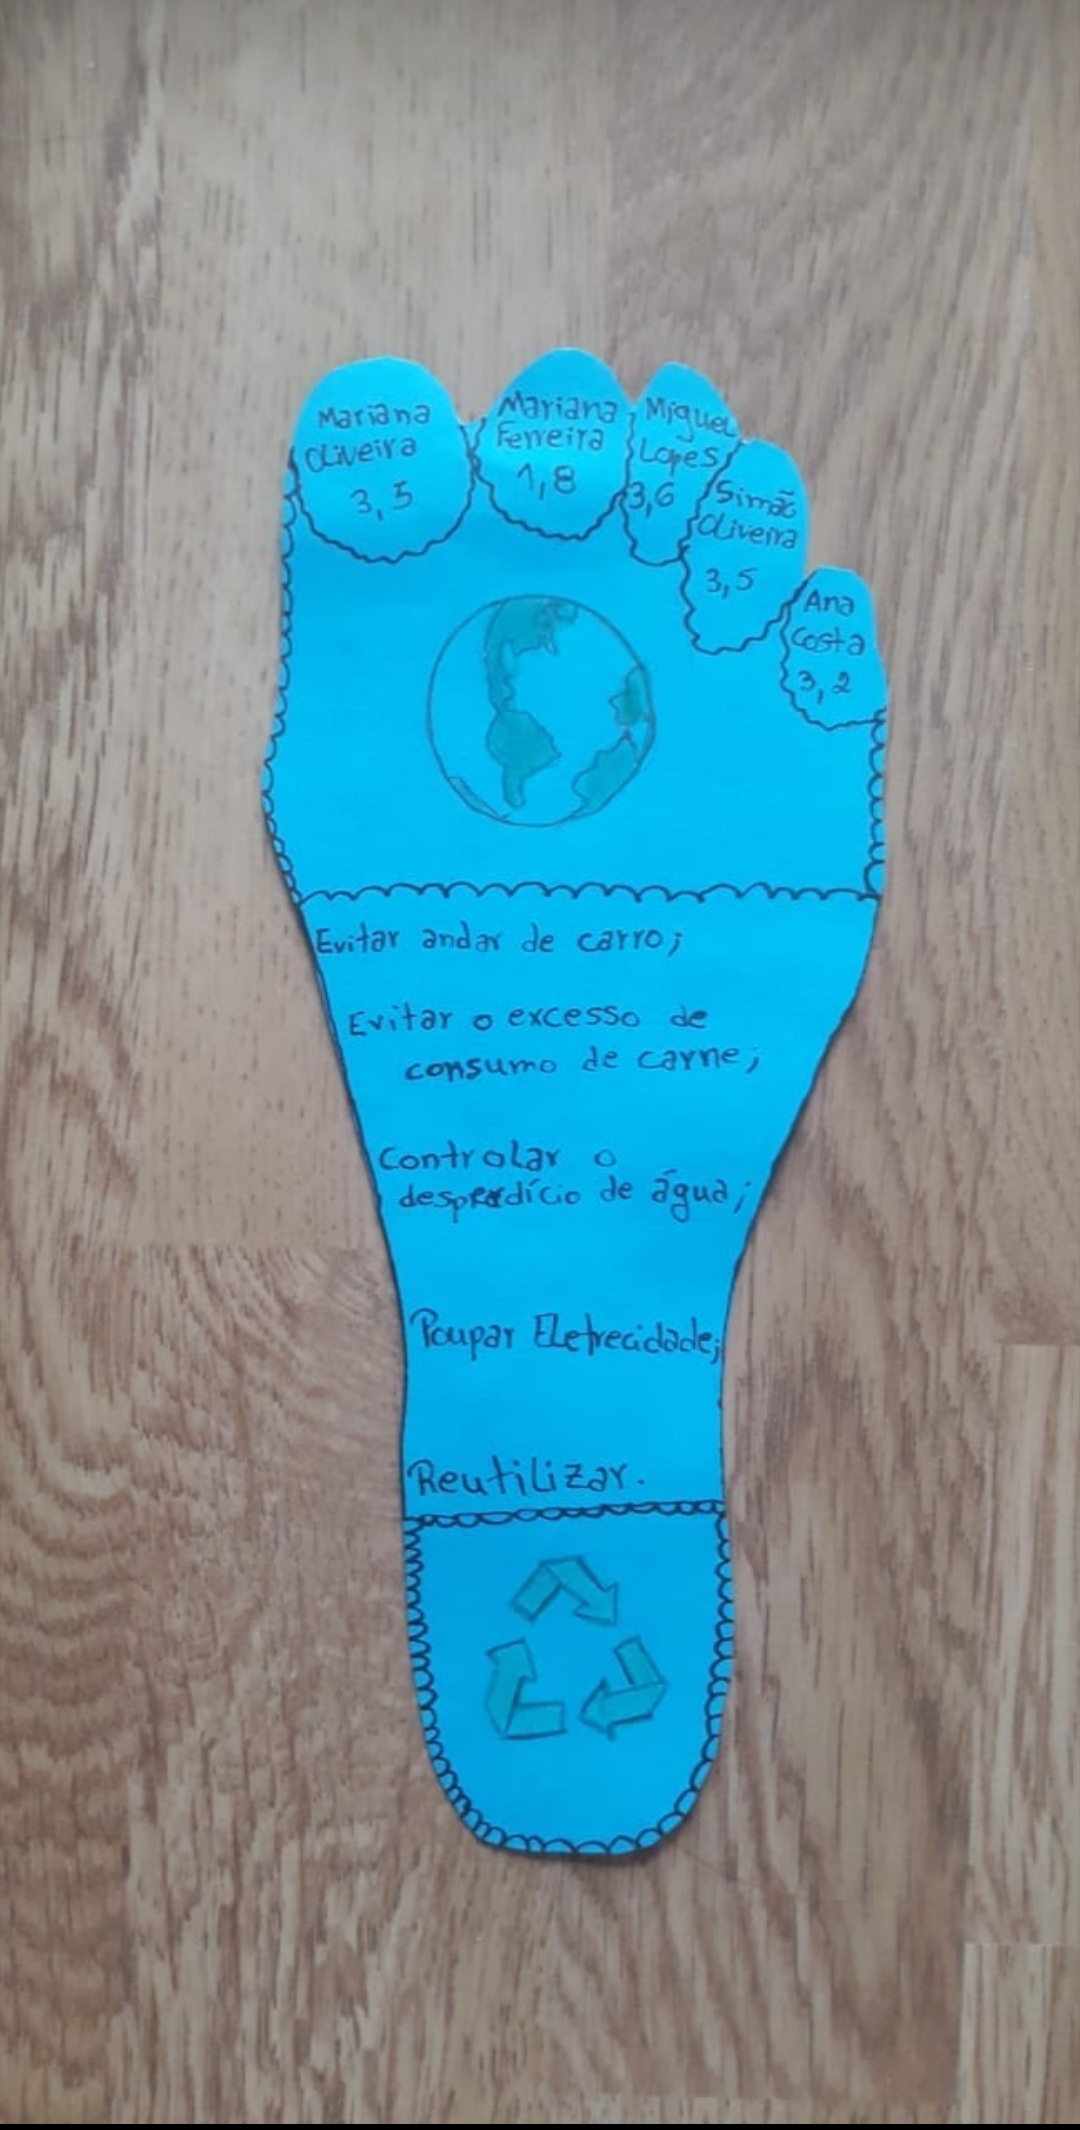 Mariana
Oliveira
3,5
Mariana
Ferreira
1,8
Miguel
Lopes
3,6
Simão
Oliveira
3,5
Ana
Costa
3,2
Evitar andar de carro;
Evitar o excesso de
consumo de carne;
Controlar o
desperdício de água;
Poupar Eletrecidade;
Reutilizar.